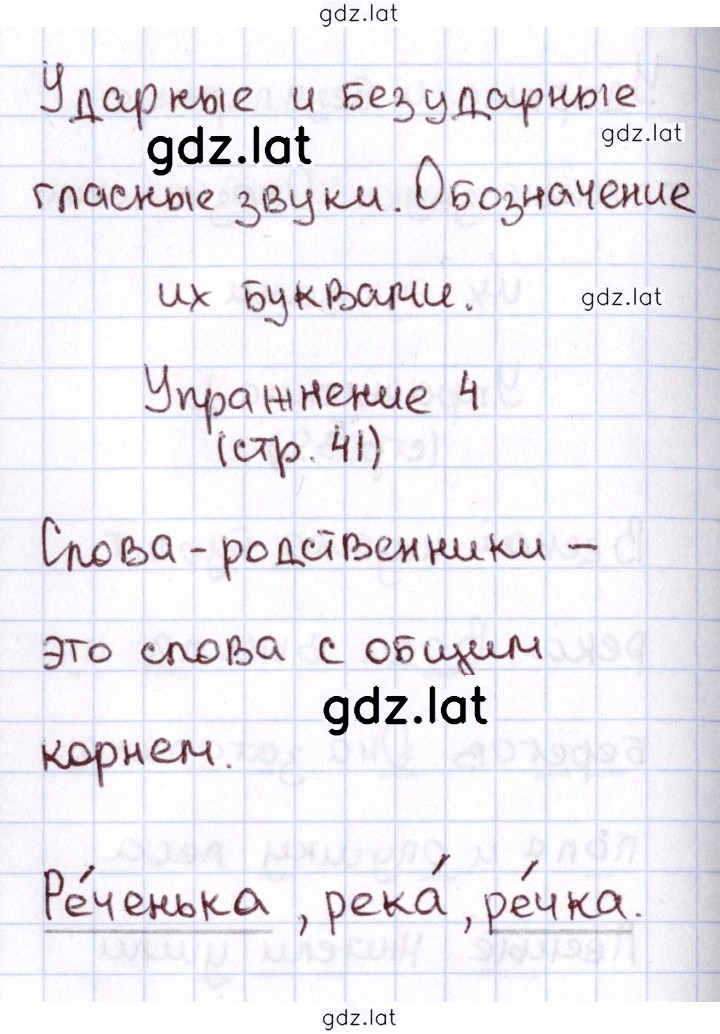 gdz.lat
Ударные и безударные
gdz.lat
gdz.lat
гласные звуки. Обозначение
их буквами.
gdz.lat
Упражнение 4
(стр. 41)
Слова-родственники –
это слова с общим
gdz.lat
корнем.
Ре́ченька, река́, ре́чка.
gdz.lat